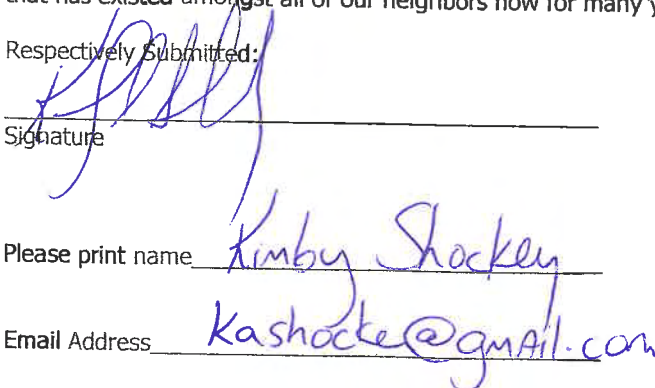 that has existed amongst all of our neighbors now for many y
Respectively Submitted:
Signature
Please print name Kimby Shockey
Email Address Kashocke@gmail.com